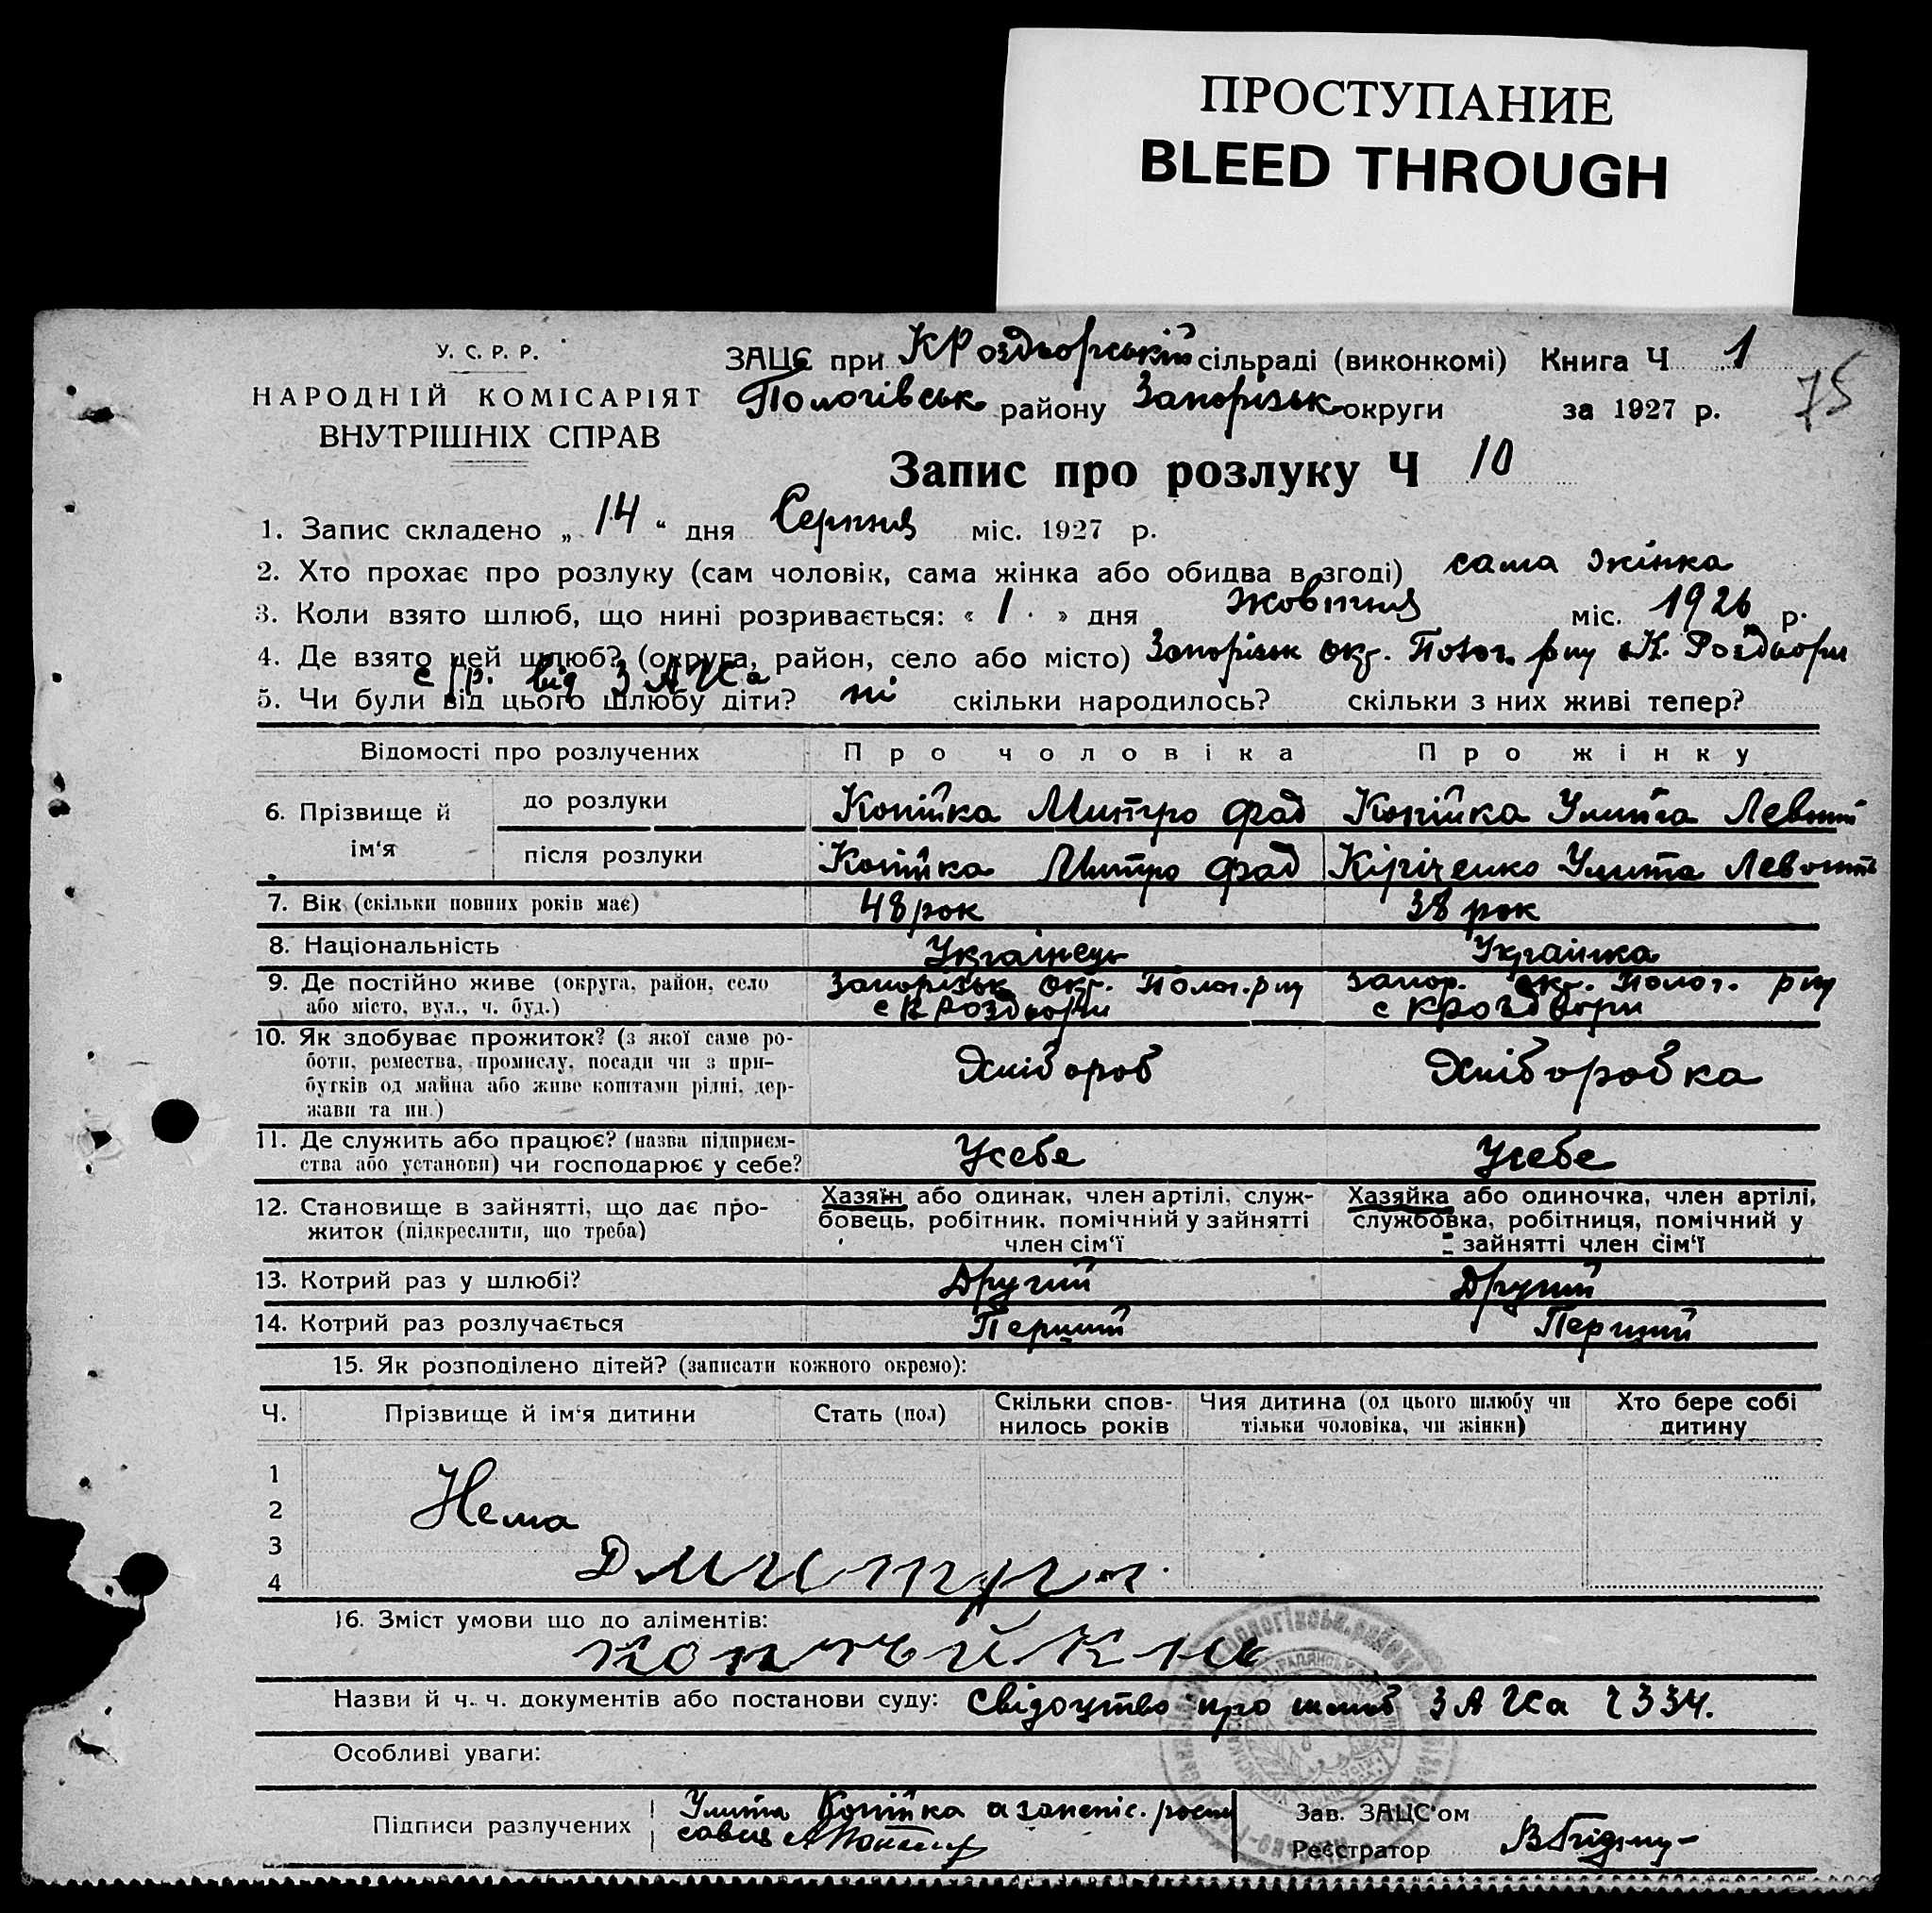 ПРОСТУПАНИЕ
BLEED THROUGH
У. С. Р. Р.
НАРОДНІЙ КОМІСАРІЯТ
ВНУТРІШНІХ СПРАВ
ЗАЦС при КРоздорській сільраді (виконкомі) Книга Ч 1
75
Пологівськ району Запорізьк округи за 1927 р.
Запис про розлуку Ч 10
1. Запис складено „ 14 “ дня Серпня міс. 1927 р.
2. Хто прохає про розлуку (сам чоловік, сама жінка або обидва в згоді) сама жінка
3. Коли взято шлюб, що нині розривається: « 1 » дня Жовтня міс. 1926 р.
4. Де взято цей шлюб? (округа, район, село або місто) Запорізьк окг. Полог. рну с К. Роздьори
с/р. від ЗАГСа
5. Чи були від цього шлюбу діти? ні скільки народилось? скільки з них живі тепер?
Відомості про розлучених Про чоловіка Про жінку
6. Прізвище й ім‘я
до розлуки Копійка Митро Фад Копійка Улита Левонт
після розлуки Копійка Митро Фад Кіріченко Улита Левонть
7. Вік (скільки повних років має) 48 рок 38 рок
8. Національність Українець Українка
9. Де постійно живе (округа, район, село Запорізьк окг. Полог. рну Запор. окг. Полог. рну
або місто, вул., ч. буд.) с К Роздьори с К Роздьори
10. Як здобуває прожиток? (з якої саме ро-
боти, ремества, промислу, посади чи з при- Хліб ороб Хліборобка
бутків од майна або живе коштами рідні, дер-
жави та ин.)
11. Де служить або працює? (назва підприєм- Усебе Усебе
ства або установи) чи господарює у себе?
12. Становище в зайнятті, що дає про-
житок (підкреслити, що треба)
Хазяїн або одинак, член артілі, служ-
бовець, робітник, помічний у зайнятті
член сім‘ї
Хазяйка або одиночка, член артілі,
службовка, робітниця, помічний у
зайнятті член сім‘ї
13. Котрий раз у шлюбі? Другий Другий
14. Котрий раз розлучається Перший Перший
15. Як розподілено дітей? (записати кожного окремо):
Ч. Прізвище й ім‘я дитини Стать (пол) Скільки спов-
нилось років Чия дитина (од цього шлюбу чи
тільки чоловіка, чи жінки) Хто бере собі
дитину
1
2 Нема
3
4
16. Зміст умови що до аліментів:
Назви й ч. ч. документів або постанови суду: Свідоцтво про шлюб ЗАГСа ч 334.
Особливі уваги:
Підписи разлучених Улита Копійка
Зав. ЗАЦС‘ом
Реєстратор